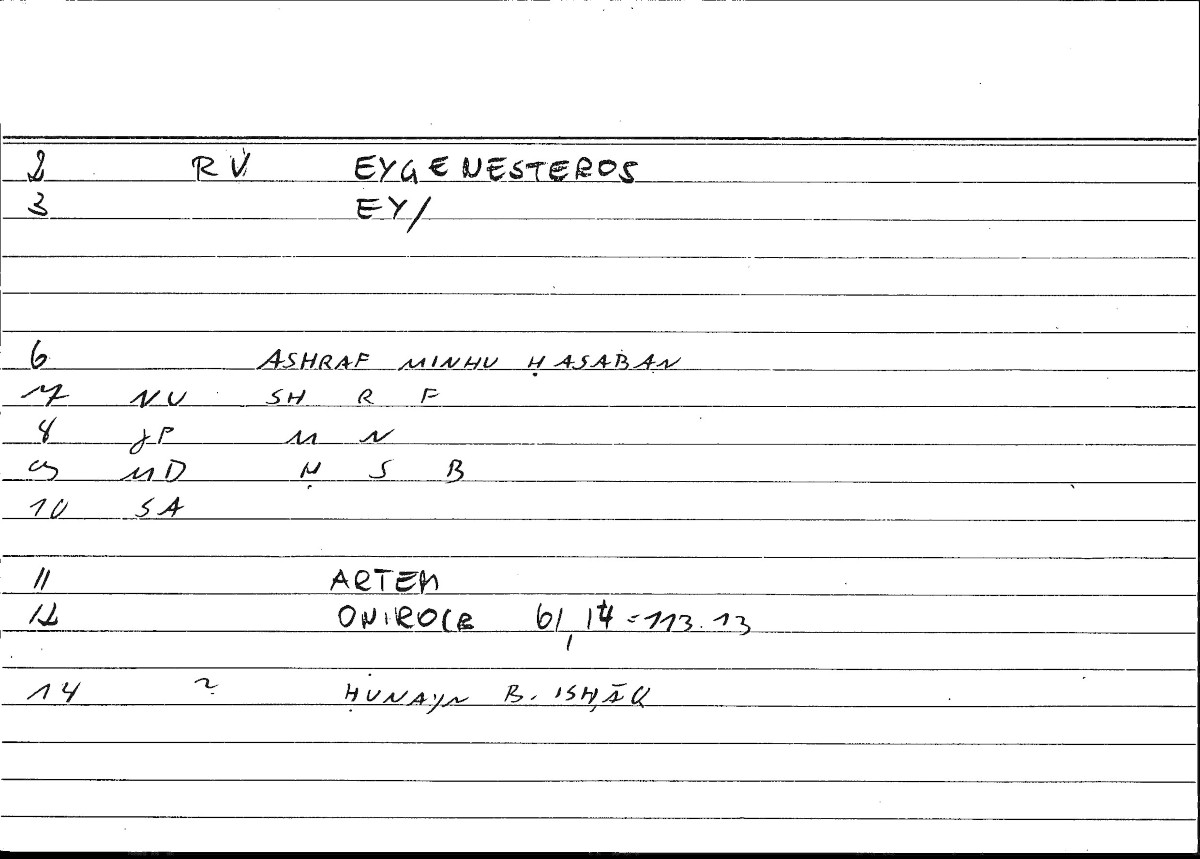 2 RV EYGENESTEROS
3 EY/
6 ASHRAF MINHU ḤASABAN
7 NU SH R F
8 JP M N
9 MD Ḥ S B
10 SA
11 ARTEM
12 ONIROCR 61,14=113.13
14 2 ḤUNAYN B. ISḤĀQ